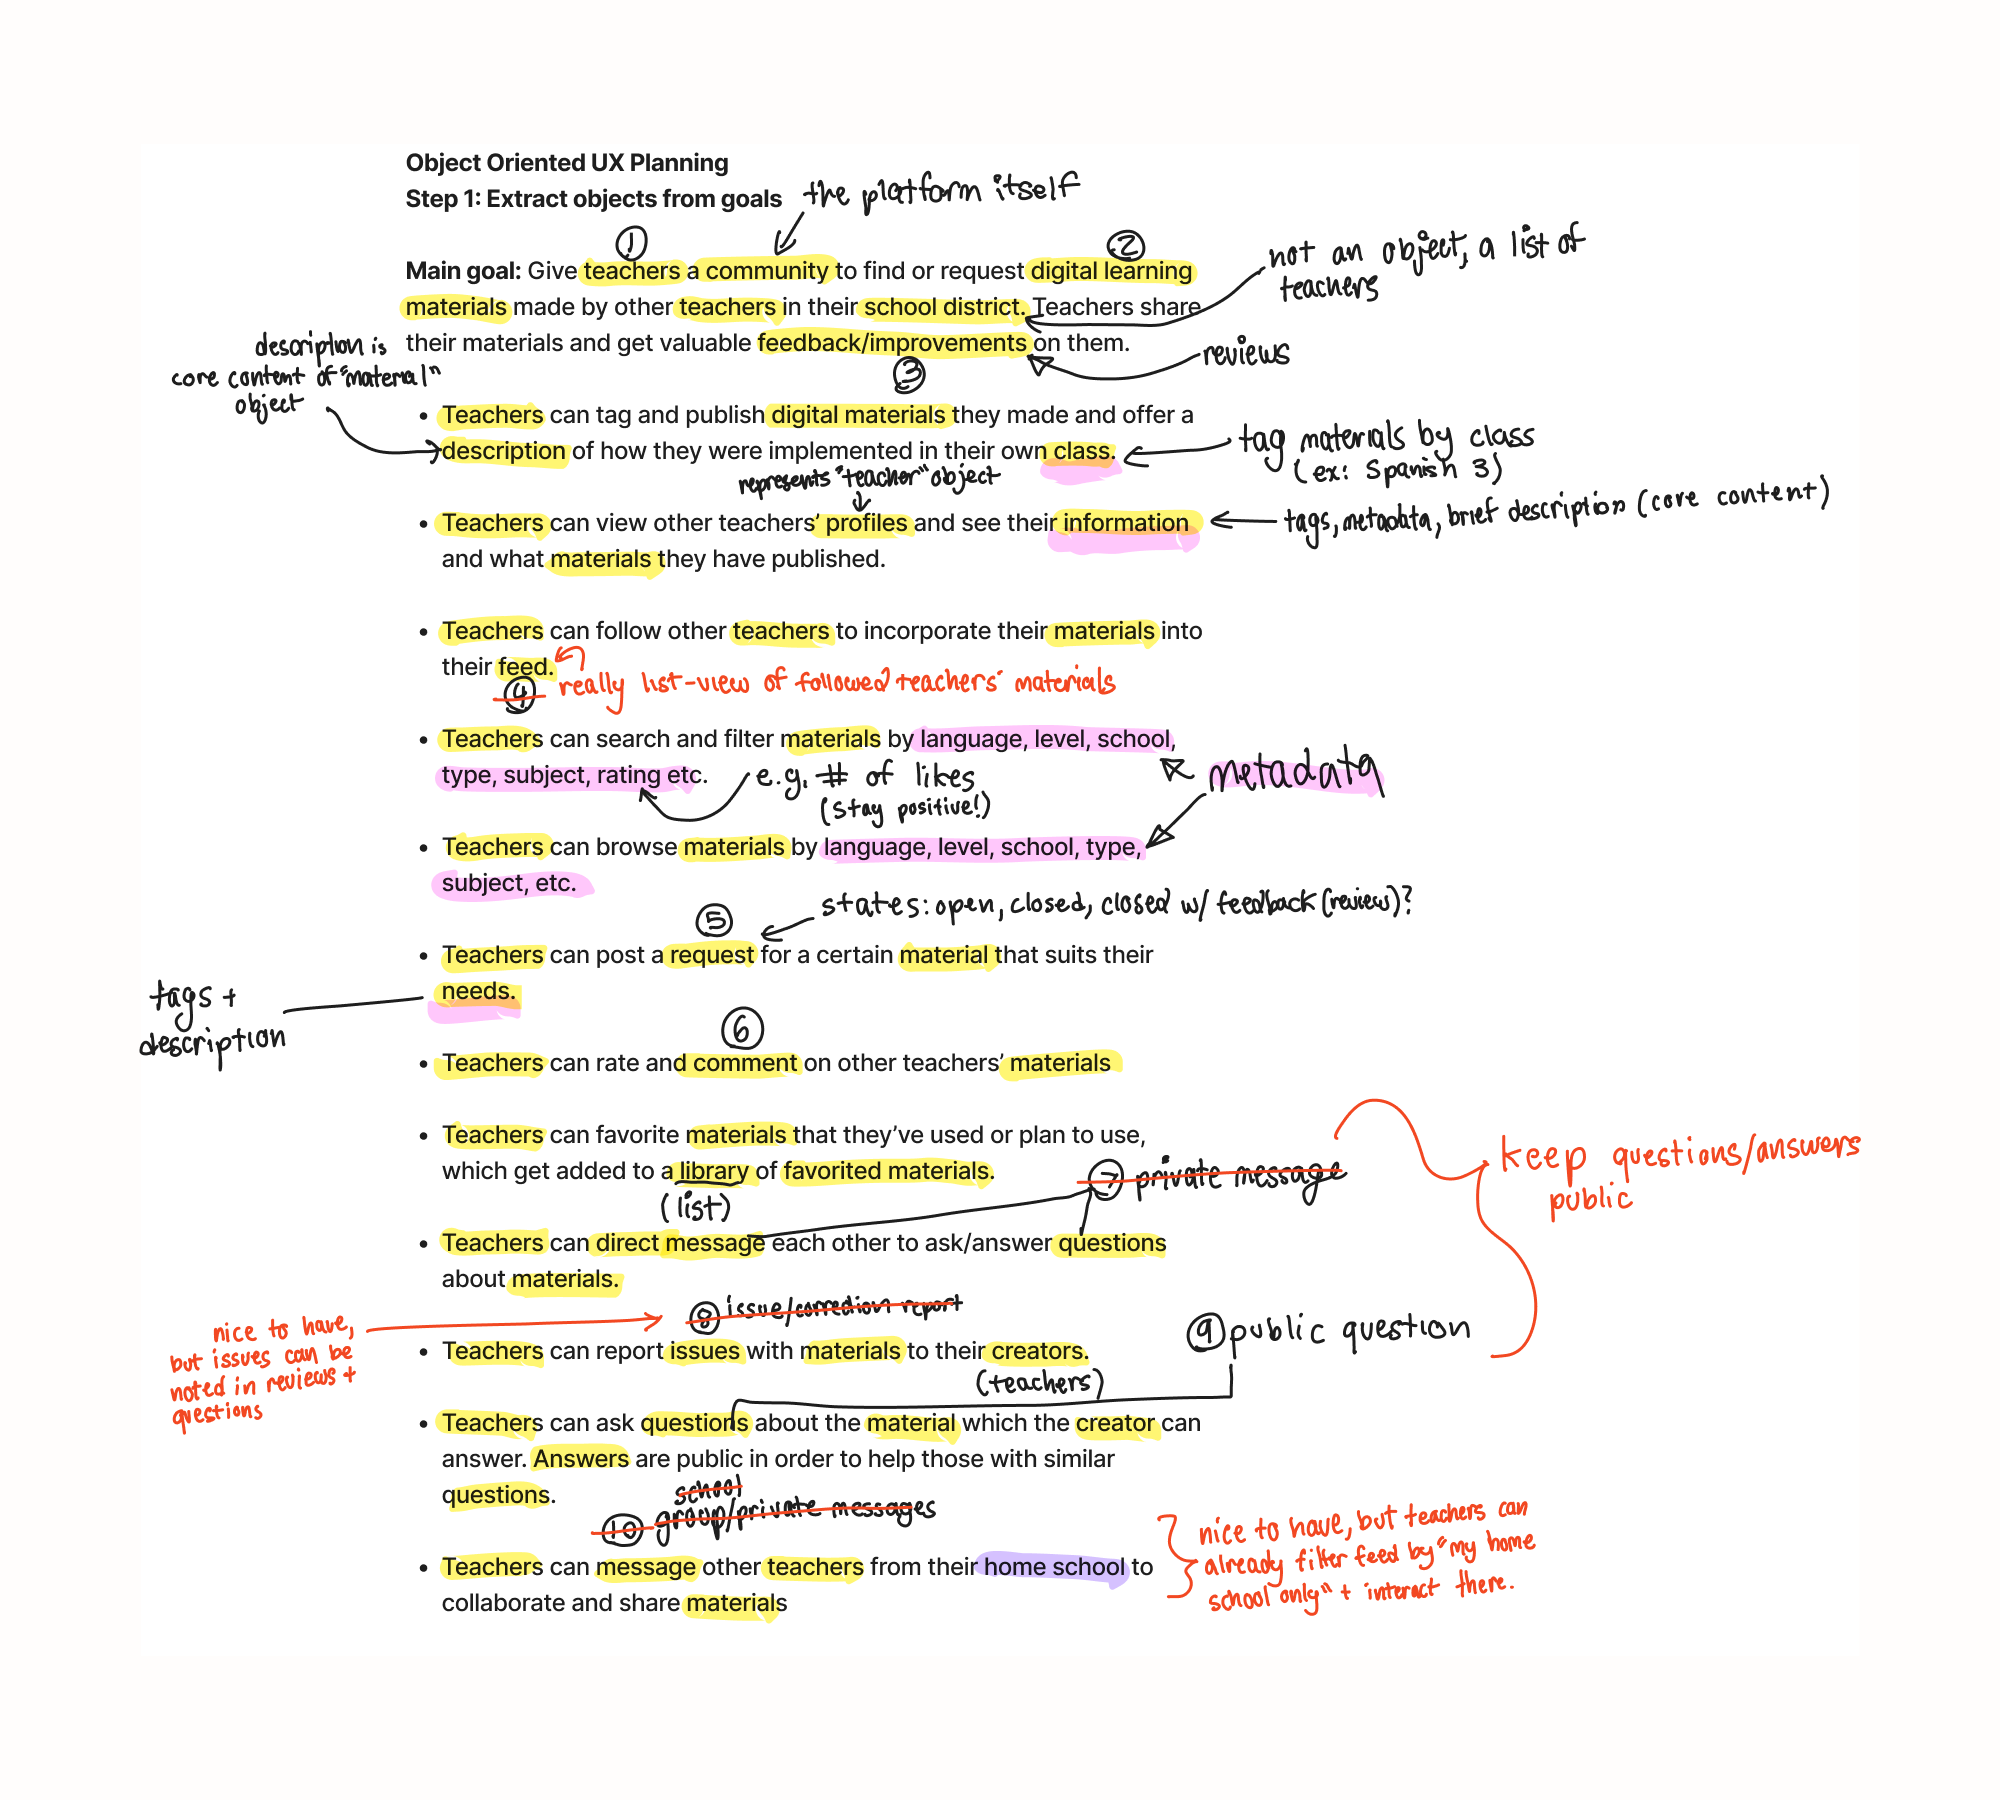 Object Oriented UX Planning
Step 1: Extract objects from goals
the platform itself
1
2
Main goal: Give teachers a community to find or request digital learning
materials made by other teachers in their school district. Teachers share
their materials and get valuable feedback/improvements on them.
not an object, a list of
teachers
reviews
3
description is
core content of "material"
object
• Teachers can tag and publish digital materials they made and offer a
description of how they were implemented in their own class.
tag materials by class
(ex: Spanish 3)
represents "teacher" object
• Teachers can view other teachers’ profiles and see their information
and what materials they have published.
tags, metadata, brief description (core content)
• Teachers can follow other teachers to incorporate their materials into
their feed.
4
really list-view of followed teachers' materials
• Teachers can search and filter materials by language, level, school,
type, subject, rating etc.
e.g. # of likes
(stay positive!)
metadata
• Teachers can browse materials by language, level, school, type,
subject, etc.
5
states: open, closed, closed w/ feedback (review)?
• Teachers can post a request for a certain material that suits their
needs.
tags +
description
6
• Teachers can rate and comment on other teachers’ materials
• Teachers can favorite materials that they’ve used or plan to use,
which get added to a library of favorited materials.
(list)
7 private message
keep questions/answers
public
• Teachers can direct message each other to ask/answer questions
about materials.
8 issue/correction report
nice to have,
but issues can be
noted in reviews +
questions
• Teachers can report issues with materials to their creators.
(teachers)
9 public question
• Teachers can ask questions about the material which the creator can
answer. Answers are public in order to help those with similar
questions.
school
10 group/private messages
• Teachers can message other teachers from their home school to
collaborate and share materials
nice to have, but teachers can
already filter feed by "my home
school only" + interact there.